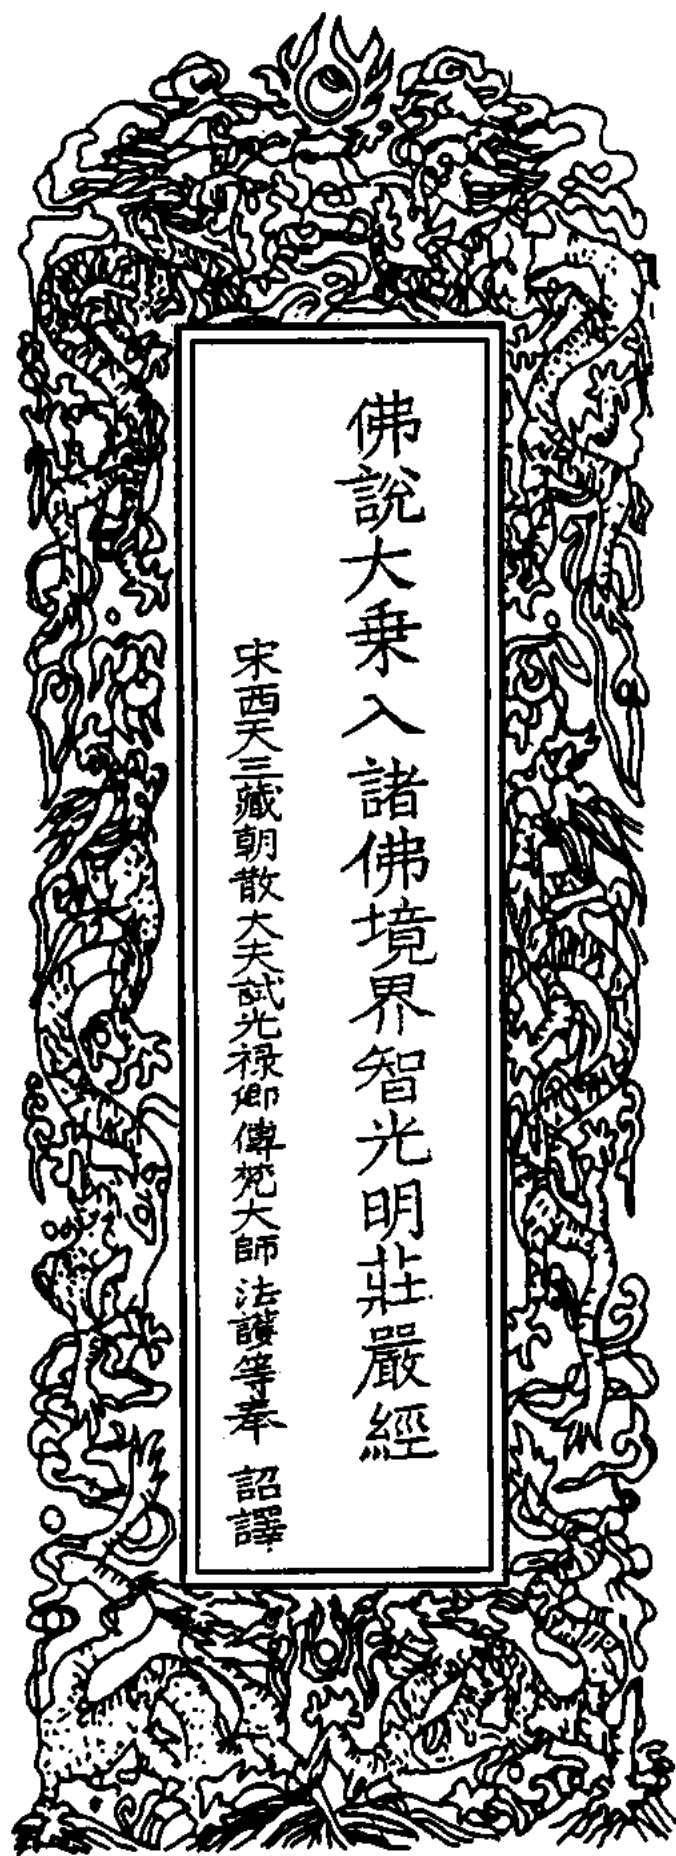 佛說大乘入諸佛境界智光明莊嚴經
宋西天三藏朝散大夫試光祿卿傳梵大師法護等奉 詔譯